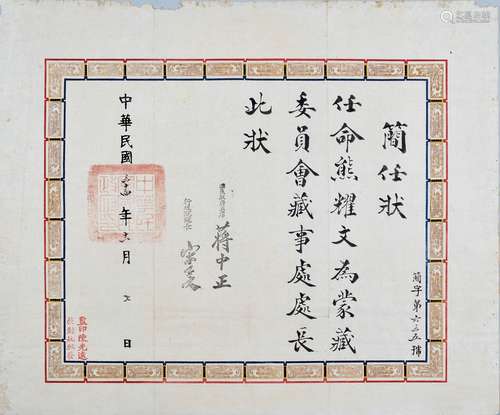 簡任狀
簡字第六三五號
任命熊耀文為蒙藏
委員會藏事處處長
此狀
國民政府主席 蔣中正
行政院院長
中華民國 年 月 日
監印陳光遠